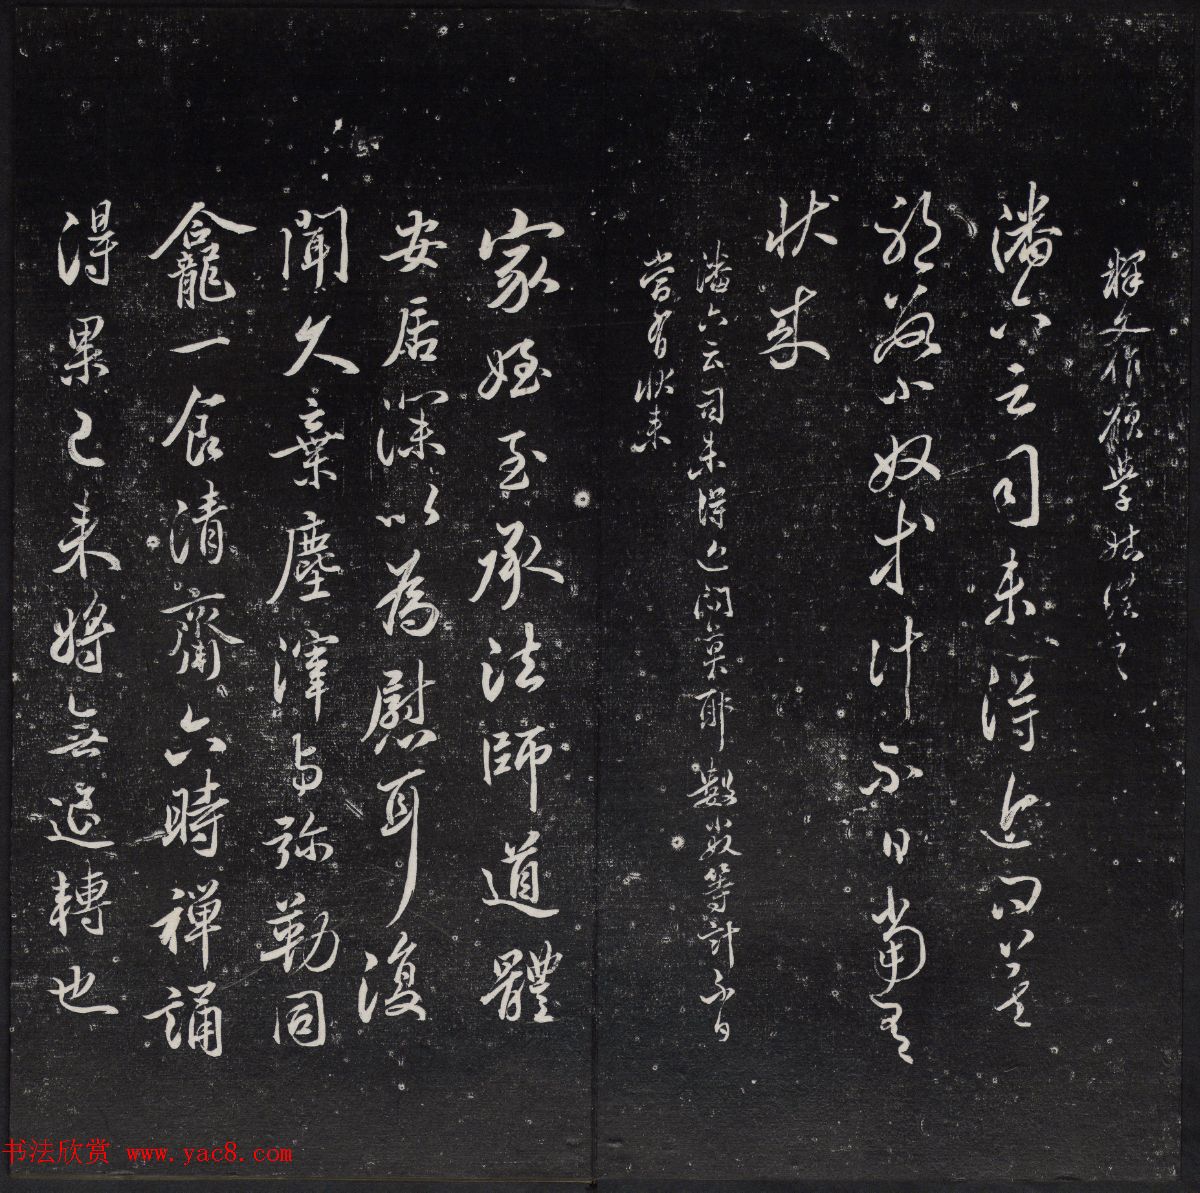 釋文作額學姑從之
潘六云司未得近問莫
耶 數小奴等計不日當有
狀來
潘六云司未得近問莫耶 數小奴等計不日
當有狀來
家姪至承法師道體
安居深以為慰耳復
聞久棄塵滓与弥勒同
龕一食清齋六時禪誦
得果已來將無退轉也
书法欣赏 www.yac8.com